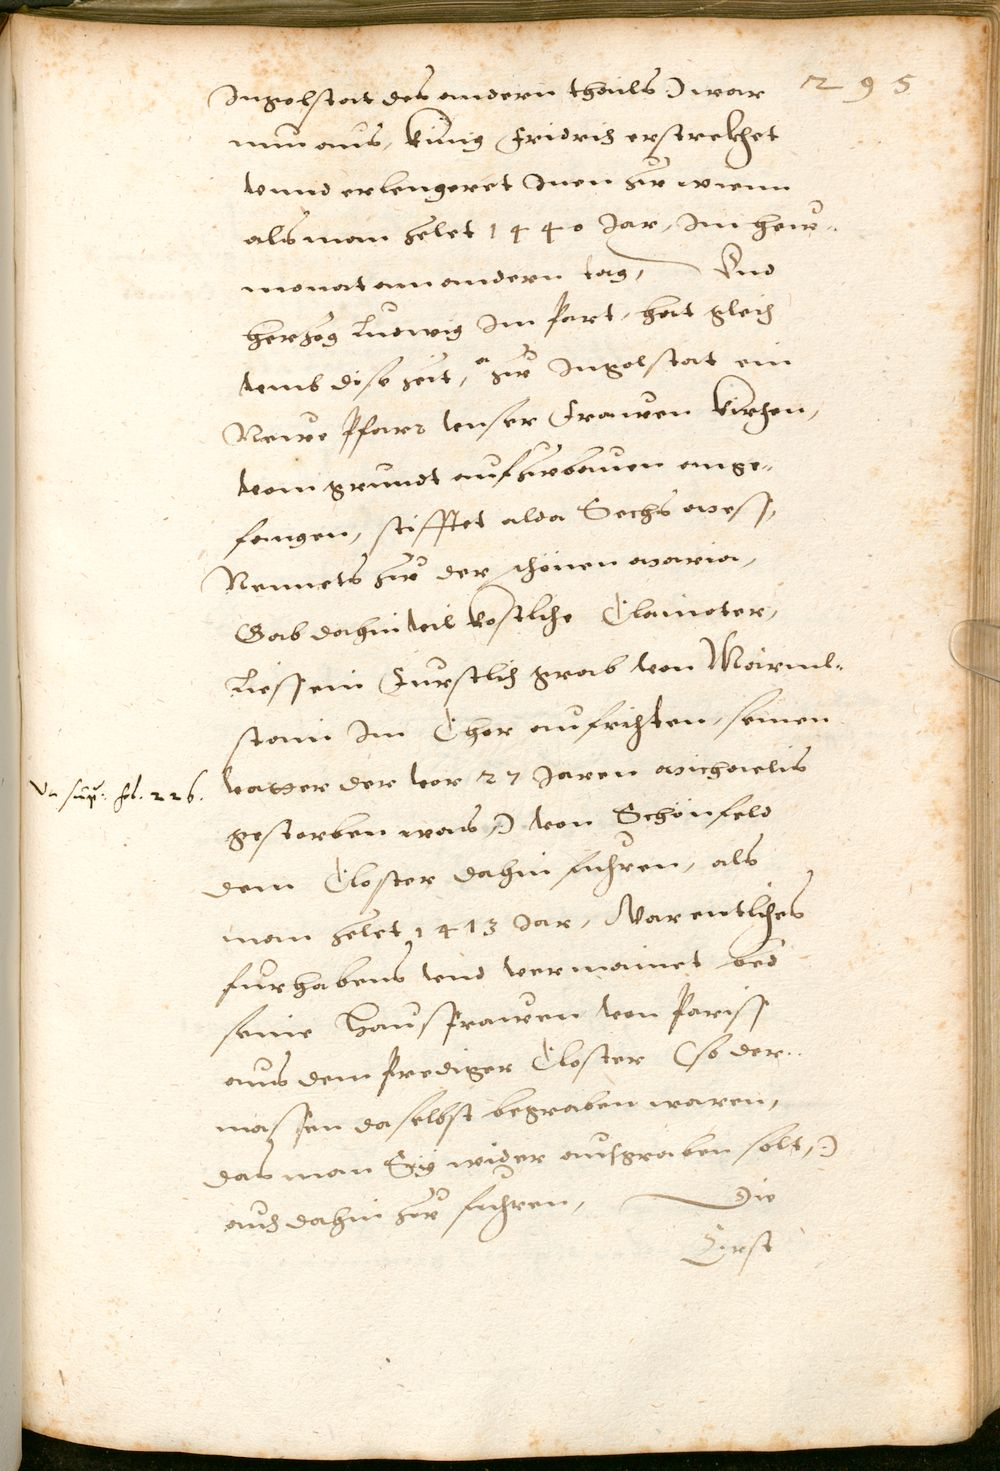 295
Ingolstat des andern thails) war
nun aus, Künig Fridrich erstrekhet
vnnd erlengeret Inen zw wienn
als man zelet 1440 Jar, Im hew-
monat am andern tag, Vnd
hertzog Ludwig Im Part, hat gleich
vmb dise zeit, zw Ingolstat ein
Newe Pfarr vnser Frawen kirchen,
vom grundt auf zwbauen ange-
fangen, stifftet alda Sechs mess,
Nennets zw der schönen maria,
Gab dahin vil kostliche Clainoter,
Liess ein Furstlich grab von Märml-
stain Im Chor aufrichten, seinen
vatter der vor 27 Jaren michaelis
Vt supr: fol. 226.
gestorben was,) von Schönfeld
dem Closter dahin fuhren, als
man zelet 1413 Jar, War entliches
furhabens vnd vermainet bed
seine Hausfrawen von Pariss
aus dem Prediger Closter (so der-
massen daselbst begraben waren,
das man Sÿ wider ausgraben solt,)
auch dahin zw fuhren, Die
Erst